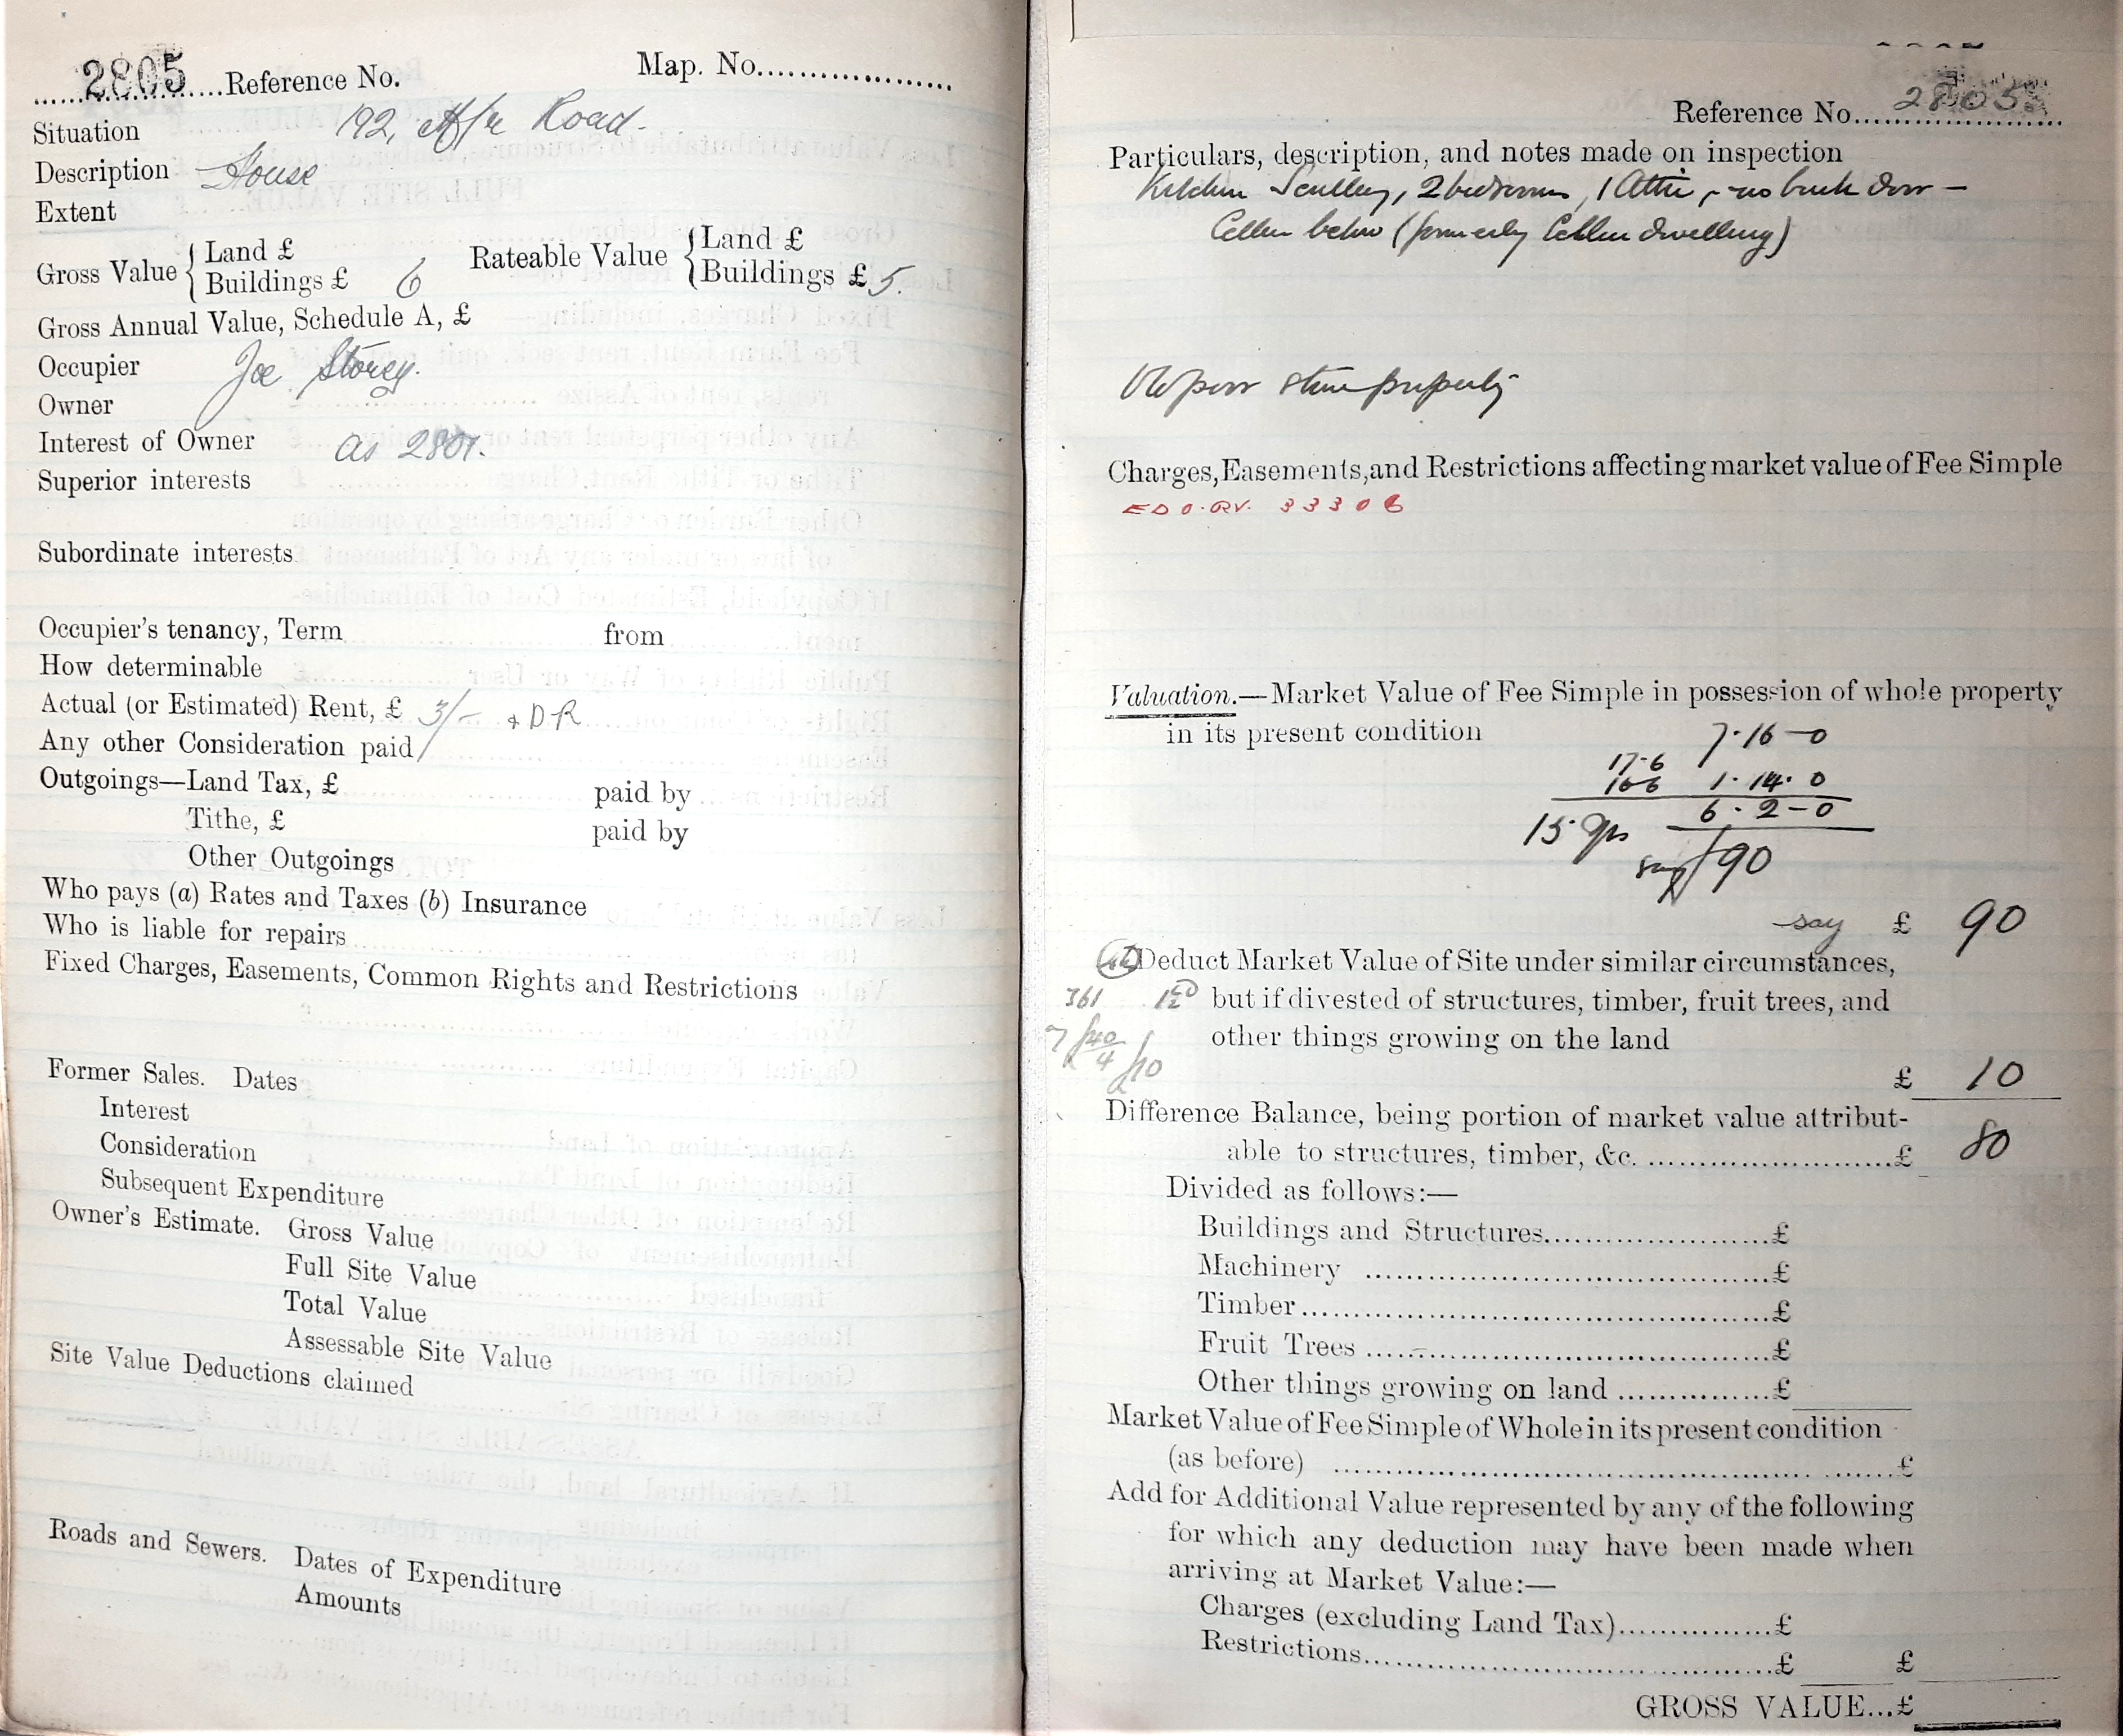 2805 Reference No. Map. No.
Situation 192, Road.
Description House
Extent
Gross Value { Land £
Buildings £ 6
Rateable Value { Land £
Buildings £ 5.
Gross Annual Value, Schedule A, £
Occupier Joe Storey.
Owner
Interest of Owner as 2801.
Superior interests
Subordinate interests
Occupier's tenancy, Term from
How determinable
Actual (or Estimated) Rent, £ 3/- + DR
Any other Consideration paid
Outgoings—Land Tax, £ paid by
Tithe, £ paid by
Other Outgoings
Who pays (a) Rates and Taxes (b) Insurance
Who is liable for repairs
Fixed Charges, Easements, Common Rights and Restrictions
Former Sales. Dates
Interest
Consideration
Subsequent Expenditure
Owner's Estimate. Gross Value
Full Site Value
Total Value
Assessable Site Value
Site Value Deductions claimed
Roads and Sewers. Dates of Expenditure
Amounts
Reference No. 2805
Particulars, description, and notes made on inspection
Kitchen Scullery, 2 bedrooms, 1 Attic, - no back door -
Cellar below (formerly Cellar dwelling)
Old poor stone property
Charges, Easements, and Restrictions affecting market value of Fee Simple
33306
Valuation.—Market Value of Fee Simple in possession of whole property
in its present condition
7-16-0
17-6
16-6 1-14-0
6-2-0
15 yrs
say 90
say £ 90
Deduct Market Value of Site under similar circumstances,
361 but if divested of structures, timber, fruit trees, and
other things growing on the land
40
4
10
£ 10
Difference Balance, being portion of market value attribut-
able to structures, timber, &c. £ 80
Divided as follows:—
Buildings and Structures £
Machinery £
Timber £
Fruit Trees £
Other things growing on land £
Market Value of Fee Simple of Whole in its present condition
(as before) £
Add for Additional Value represented by any of the following
for which any deduction may have been made when
arriving at Market Value:—
Charges (excluding Land Tax) £
Restrictions £ £
GROSS VALUE...£